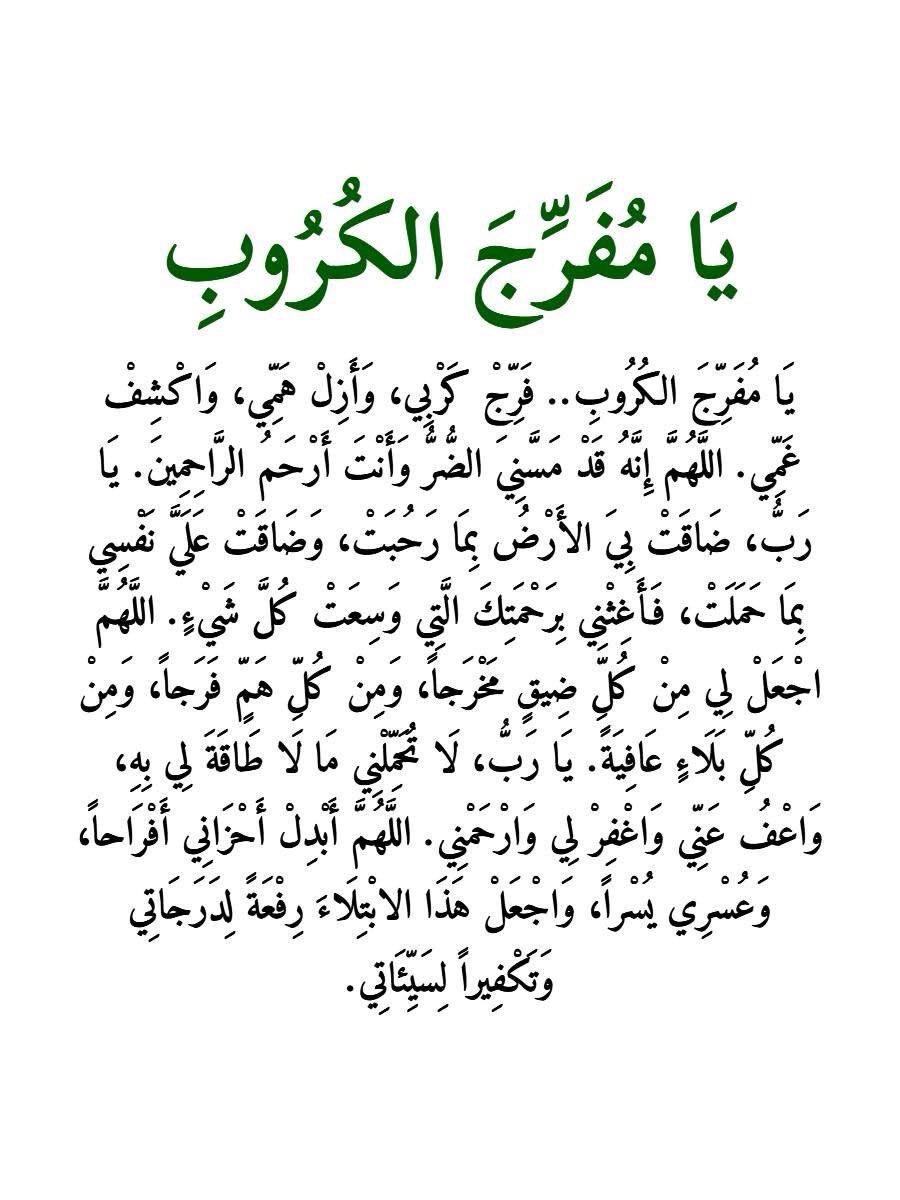 يَا مُفَرِّجَ الكُرُوبِ
يَا مُفَرِّجَ الكُرُوبِ.. فَرِّجْ كَرْبِي، وَأَزِلْ هَمِّي، وَاكْشِفْ
غَمِّي. اللَّهُمَّ إِنَّهُ قَدْ مَسَّنِيَ الضُّرُّ وَأَنْتَ أَرْحَمُ الرَّاحِمِينَ. يَا
رَبُّ، ضَاقَتْ بِيَ الأَرْضُ بِمَا رَحُبَتْ، وَضَاقَتْ عَلَيَّ نَفْسِي
بِمَا حَمَلَتْ، فَأَغِثْنِي بِرَحْمَتِكَ الَّتِي وَسِعَتْ كُلَّ شَيْءٍ. اللَّهُمَّ
اجْعَلْ لِي مِنْ كُلِّ ضِيقٍ مَخْرَجاً، وَمِنْ كُلِّ هَمٍّ فَرَجاً، وَمِنْ
كُلِّ بَلَاءٍ عَافِيَةً. يَا رَبُّ، لَا تُحَمِّلْنِي مَا لَا طَاقَةَ لِي بِهِ،
وَاعْفُ عَنِّي وَاغْفِرْ لِي وَارْحَمْنِي. اللَّهُمَّ أَبْدِلْ أَحْزَانِي أَفْرَاحاً،
وَعُسْرِي يُسْراً، وَاجْعَلْ هَذَا الابْتِلَاءَ رِفْعَةً لِدَرَجَاتِي
وَتَكْفِيراً لِسَيِّئَاتِي.